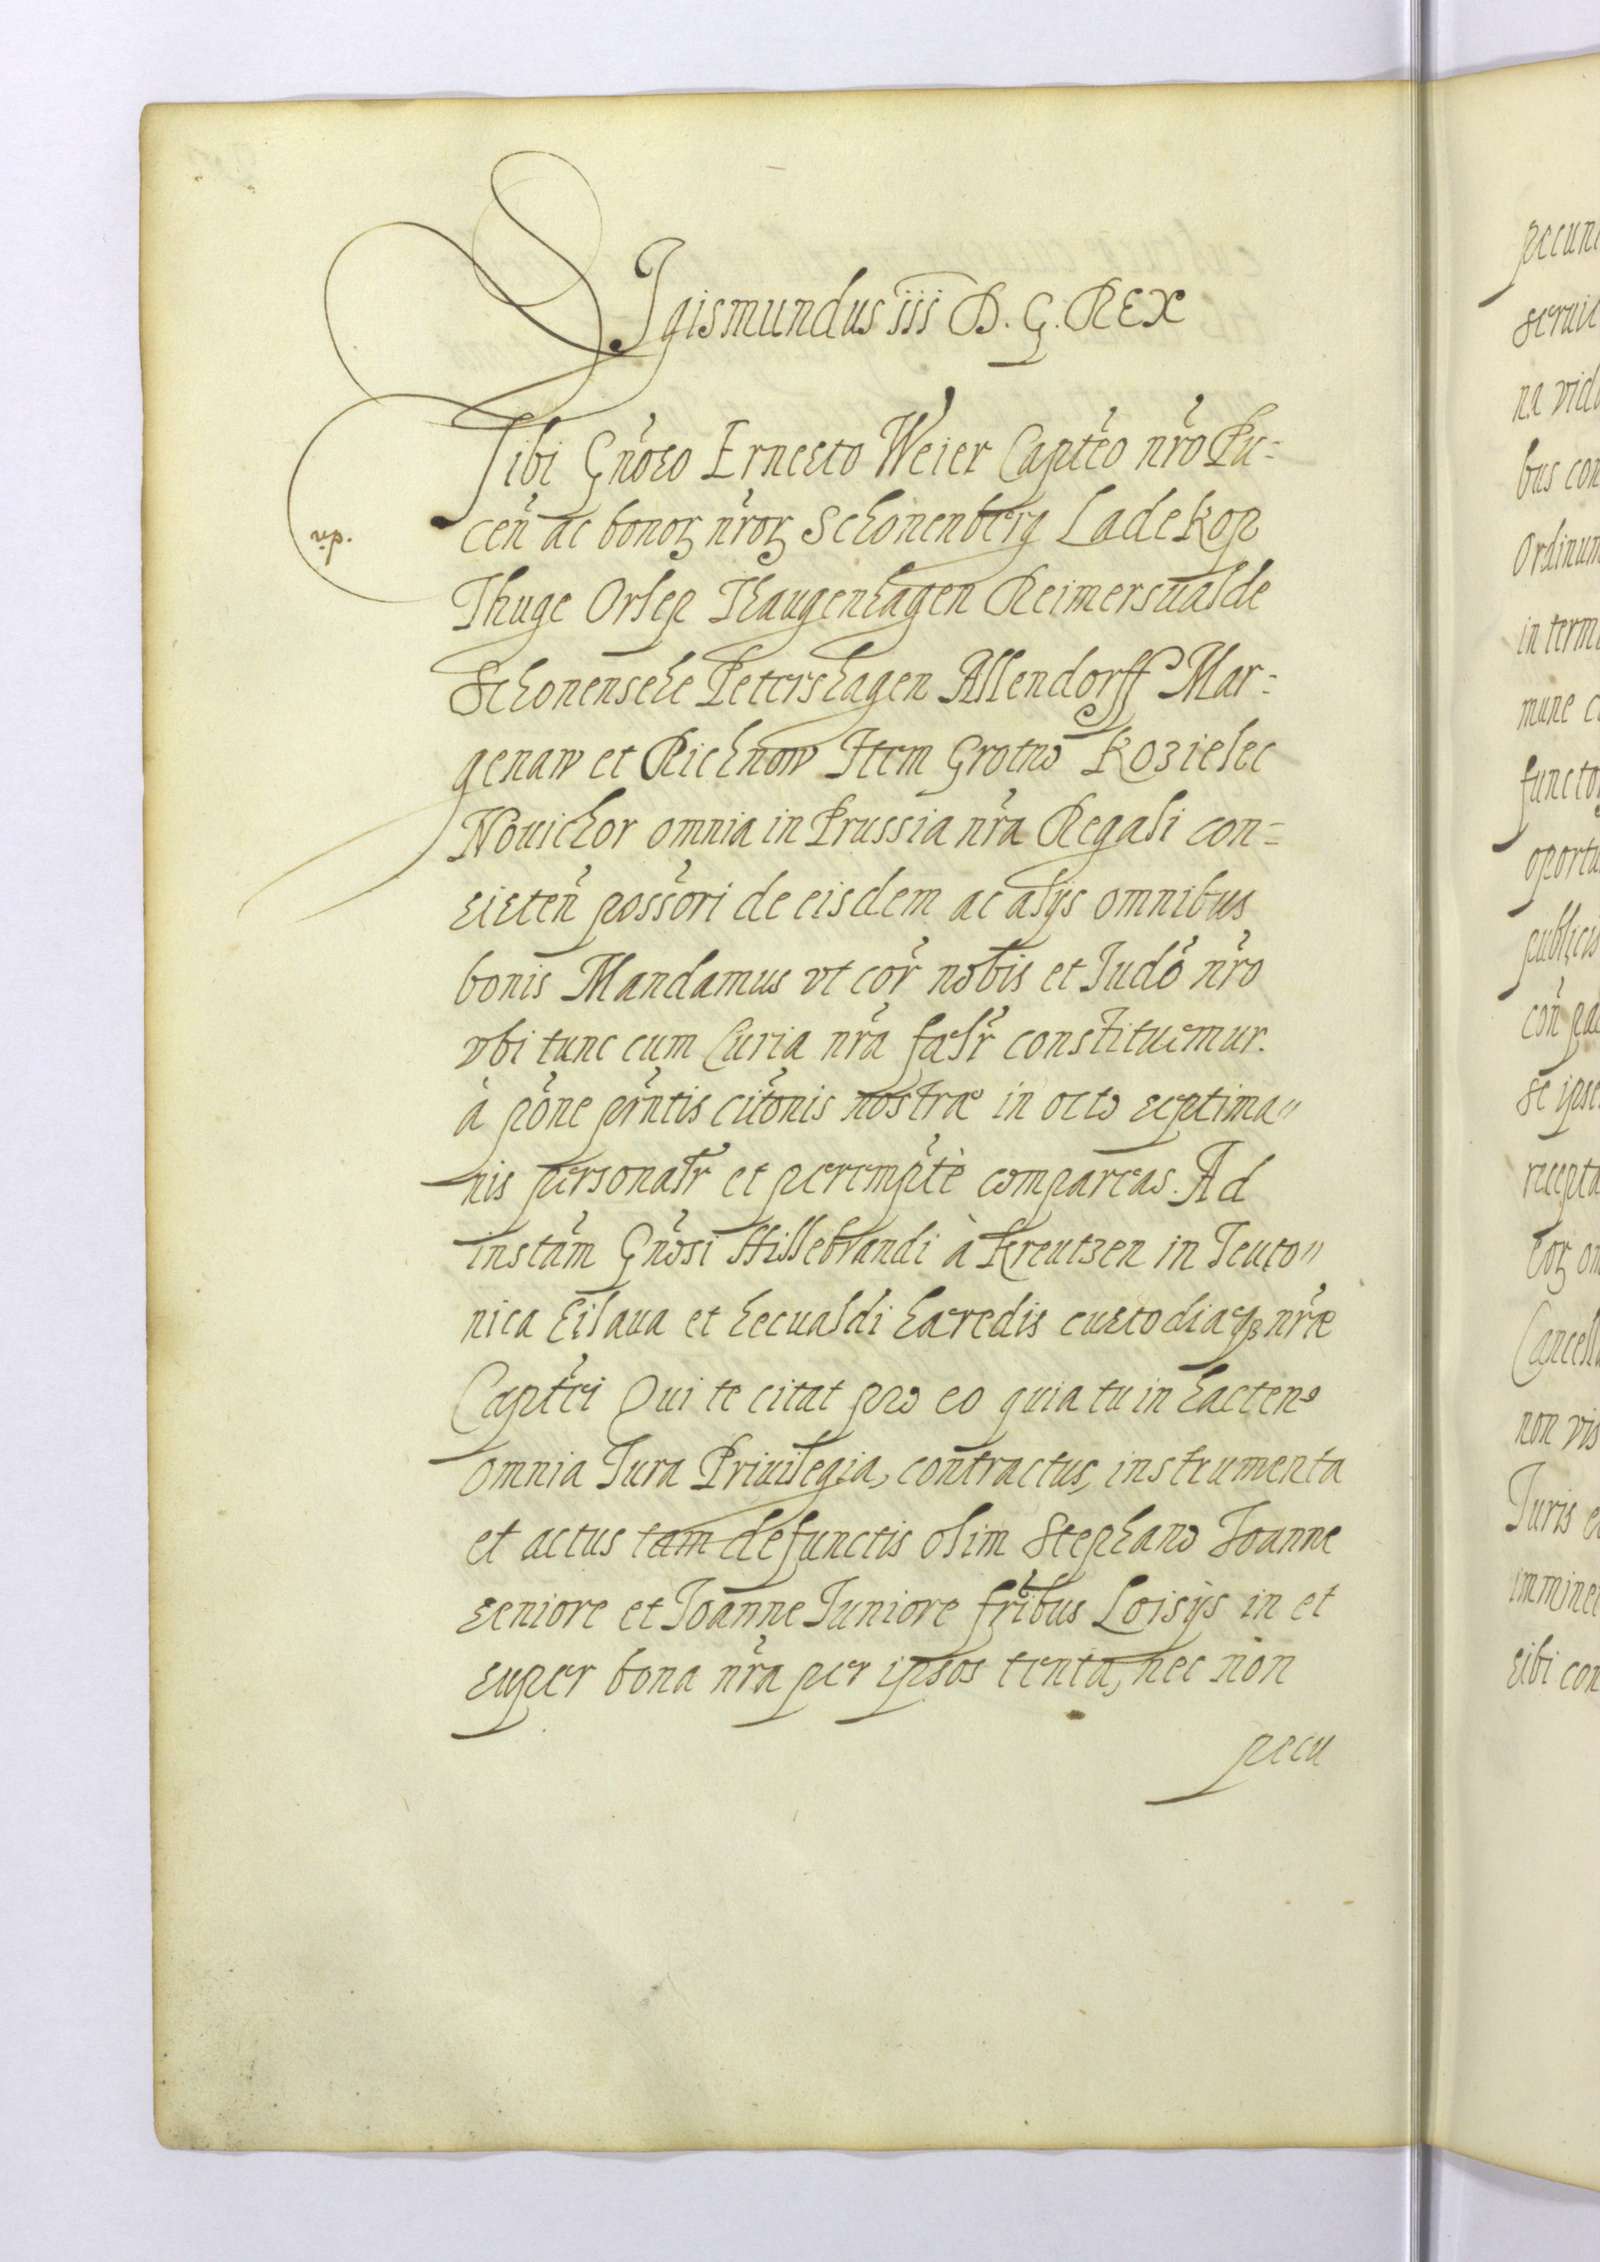 SIgismundus iii D. G. REX
Tibi Gn̄oso Ernesto Weier Captēo nr̄o Pu-
cen̄ ac bonoꝝ nr̄oꝝ Schonenberg Ladekop
Thuge Orlep Thaugenhagen Reimersualde
Schonensche Petershagen Allendorff Mar-
genaw et Richnow Item Grotno Kozielec
Nouichor omnia in Prussia nr̄a Regali con-
sisten̄ poss̄ori de eisdem ac alijs omnibus
bonis Mandamus vt cor̄ nobis et Iudō nr̄o
vbi tunc cum Curia nr̄a falr̄ constituemur.
à pōne pr̄ntis citōnis nostræ in octo septima„
nis personalr̄ et perempt̄è compareas. Ad
instām Gn̄osi Hillebrandi à Kreutzen in Teuto„
nica Eilaua et Lecualdi hæredis custodiæqꝫ nr̄æ
Capt̄ei Qui te citat pro eo quia tu in hacten⁹
omnia Iura Priuilegia, contractus, instrumenta
et actus tam defunctis olim Stephano Joanne
seniore et Joanne Juniore fr̄ibus Loisijs in et
super bona nr̄a per ipsos tenta, nec nōn
pecu
pecun
seruic
na vid
bus con
Ordinum
in term
mune c
functo
oportu
publicis
con̄ pa
se ipse
recepta
eoꝝ om
Cancell
non vis
Iuris e
immine
sibi con